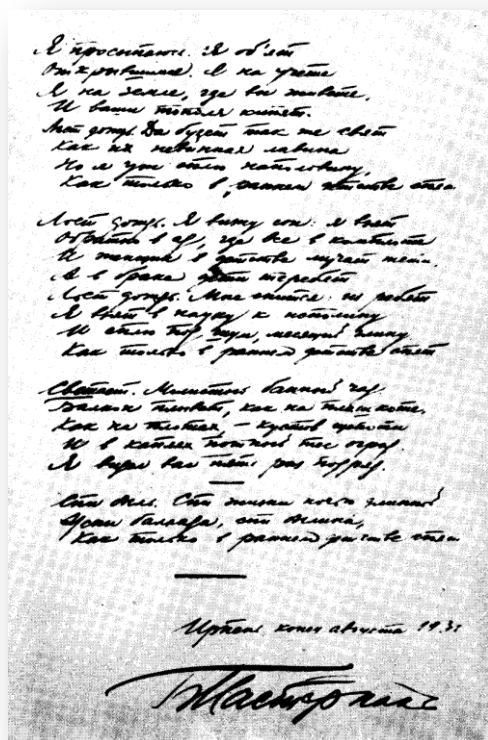 Я просыпаюсь. Я об'ят
Открывшимся. Я на учете
Я на земле, где вы живете,
И ваши тополя кипят.
Льет дождь. Да будет так же свят
Как их невинная лавина
Но я уж сплю наполовину,
Как только в раннем детстве спят
Льет дождь. Я вижу сон: я взят
Обратно в ад, где все в комплоте
И женщин в детстве мучат тети.
А в браке дети теребят
Льет дождь. Мне снится: из ребят
Я взят в науку к исполину
И сплю под шум, месящий глину
Как только в раннем детстве спят
Светает. Мглистый банный чад.
Балкон плывет, как на плашкоте.
Как на плотах, – кустов щепоти
И в каплях потный тес оград
Я видел вас пять раз подряд.
Спи быль. Спи жизни ночью длинной
Усни баллада, спи былина,
Как только в раннем детстве спят
Ирпень конец августа
Б Пастернак